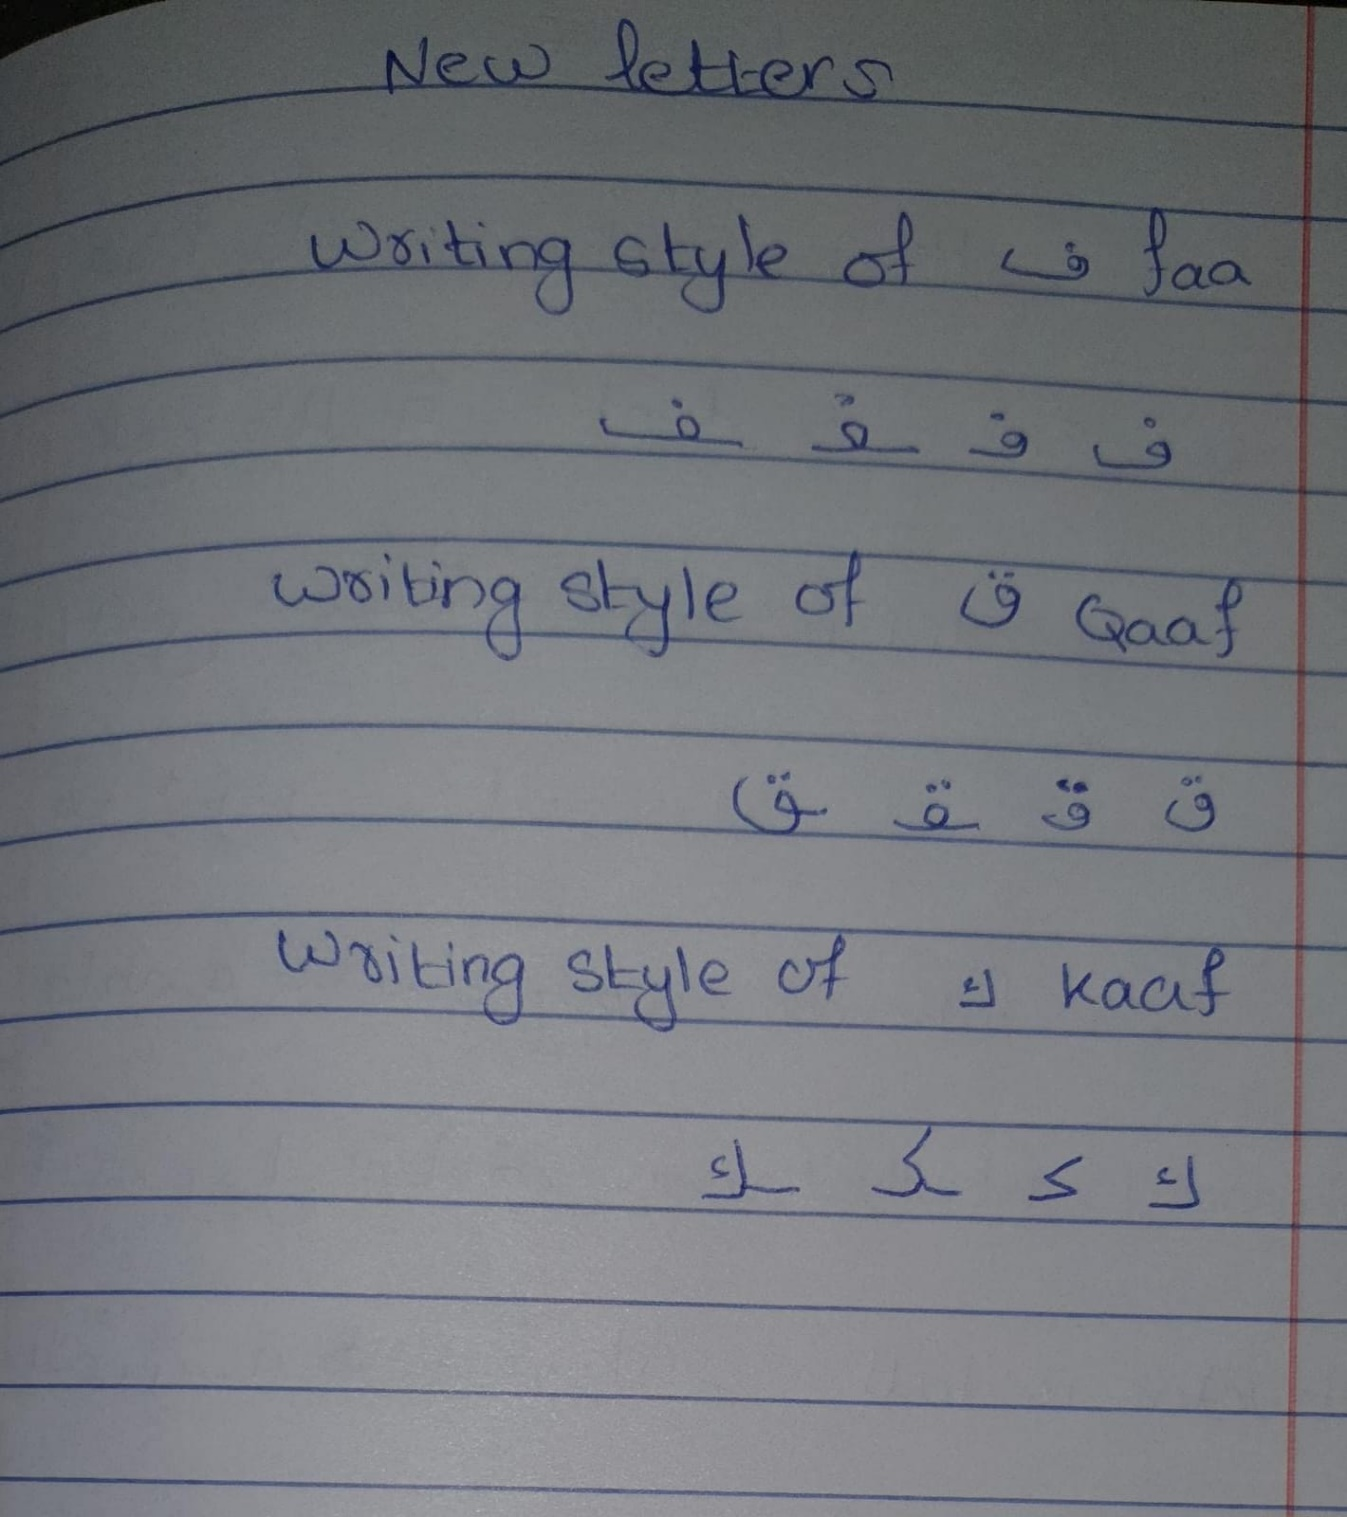 New letters
Writing style of ف faa
ف فـ ـفـ ـف
Writing style of ق Qaaf
ق قـ ـقـ ـق
Writing style of ك Kaaf
ك كـ ـكـ ـك